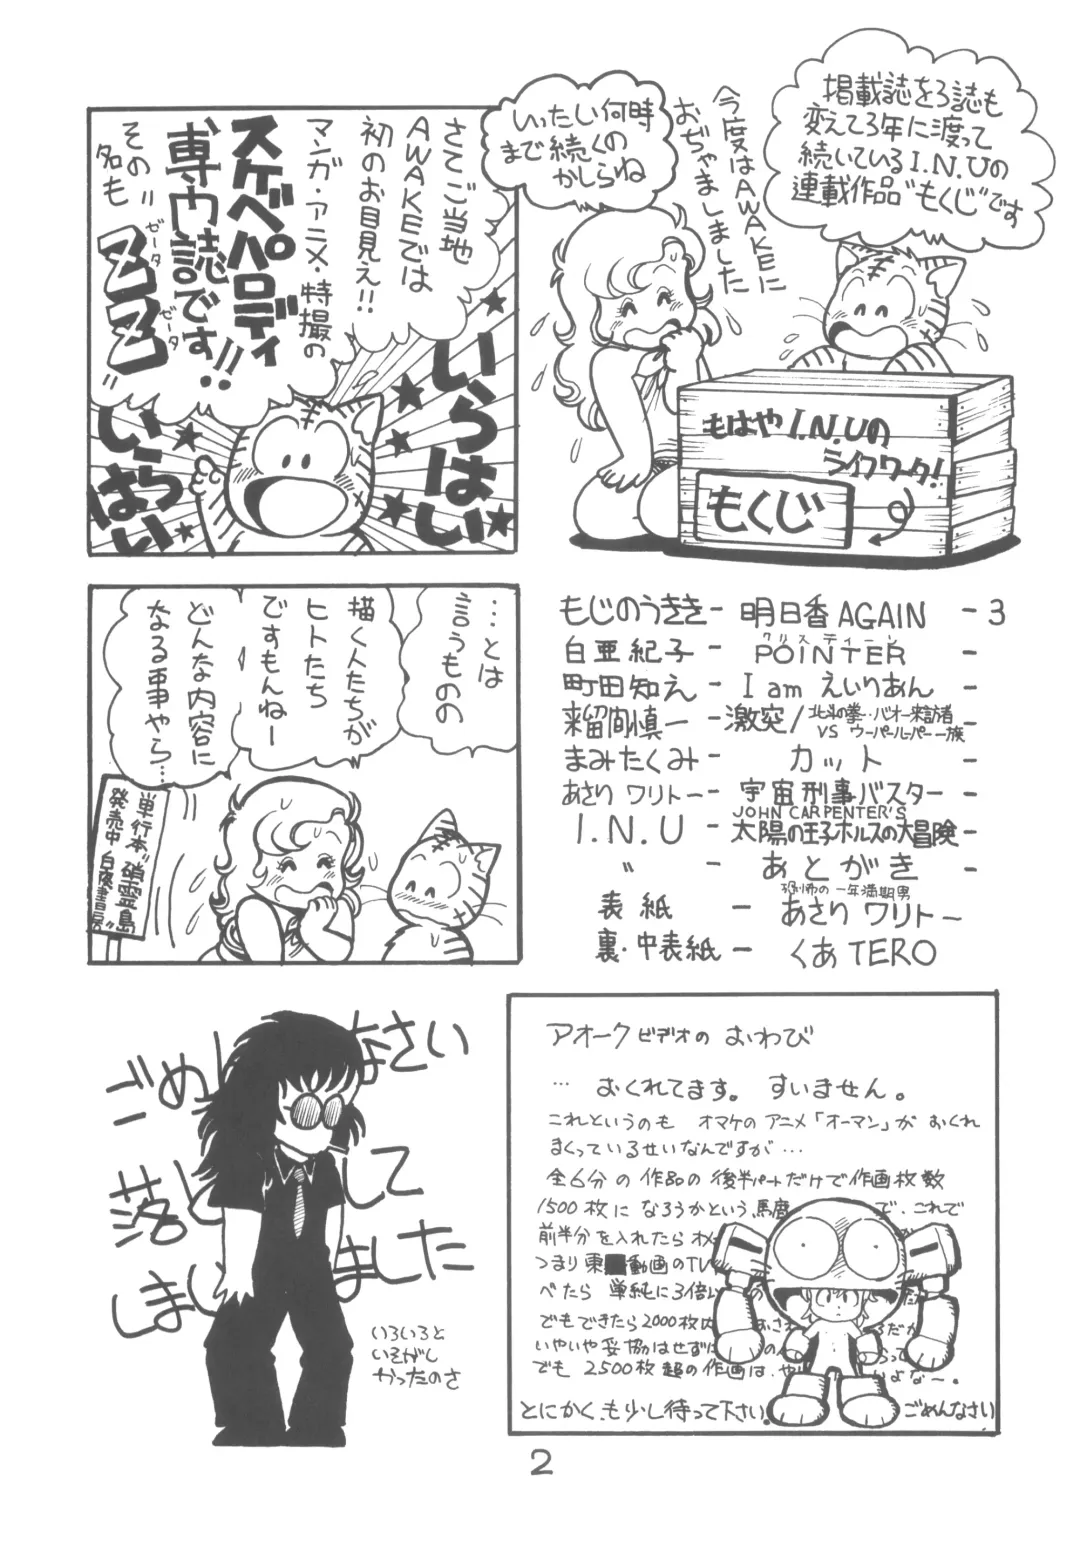 掲載誌を3誌も
変えて3年に渡って
続いているI.N.Uの
連載作品"もくじ"です
今度はAWAKEに
おぢゃましました
いったい何時
まで続くの
かしらね
もはやI.N.Uの
ライフワーク!
もくじ
さてご当地
AWAKEでは
初のお目見え!!
マンガ・アニメ・特撮の
スケベパロディ
専門誌です!!
その名も
"ZZ"
ゼータ
ゼータ
いらはい
いらはい
…とは
言うものの
描く人たちが
ヒトたち
ですもんねー
どんな内容に
なる事やら…
単行本"硝霊島"
発売中 白夜書房
もじのうききー 明日香AGAIN -3
クリスティーン
白亜紀子- POINTER -
町田知え- I am えいりあん -
来留間慎一 -激突/北斗の拳・バオー来訪者
VS ウーパールーパー一族 -
まみたくみ- カット -
あさりワリトー- 宇宙刑事バスター-
JOHN CARPENTER'S
I.N.U - 太陽の王子ホルスの大冒険-
〃 - あとがき -
恐怖の一年満期男
表紙 - あさりワリトー
裏・中表紙- くあTERO
ごめんなさい
落として
しまいました
いろいろと
いそがし
かったのさ
アオークビデオの おわび
… おくれてます。 すいません。
これというのも オマケのアニメ「オーマン」が おくれ
まくっているせいなんですが…
全6分の作品の後半パートだけで作画枚数
1500枚に なろうかという、馬鹿 で、これで
前半分を入れたら
つまり東■動画のTV
べたら 単純に3倍
でもできたら2000枚
いやいや妥協はせず
でも 2500枚超の作画は、や いよな～。
とにかく、も少し待って下さい。 ごめんなさい
2